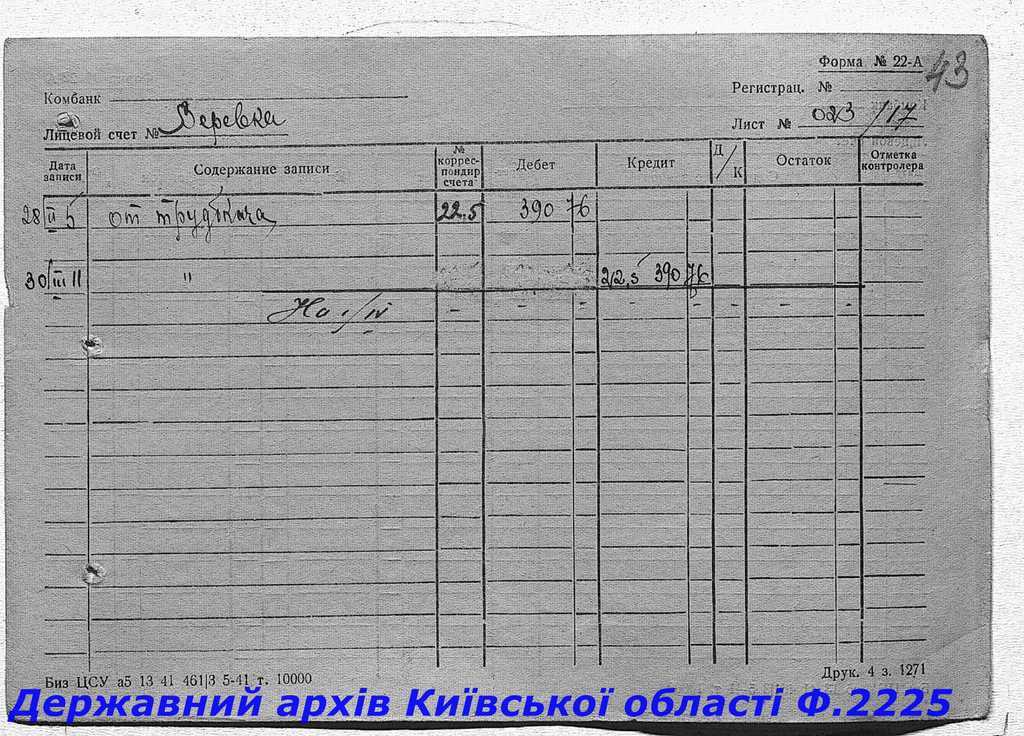 Форма № 22-А
43
Комбанк
Регистрац. №
Лицевой счет № Веревка
Лист № 023/17
Дата записи Содержание записи № коррес-пондир счета Дебет Кредит Д/К Остаток Отметка контролера
28/II 5 от 22.5 390 76
30/III 11 " 22,5 390 76
На 1/IV - - - - - - -
Биз ЦСУ а5 13 41 461|3 5-41 т. 10000
Друк. 4 з. 1271
Державний архів Київської області Ф.2225